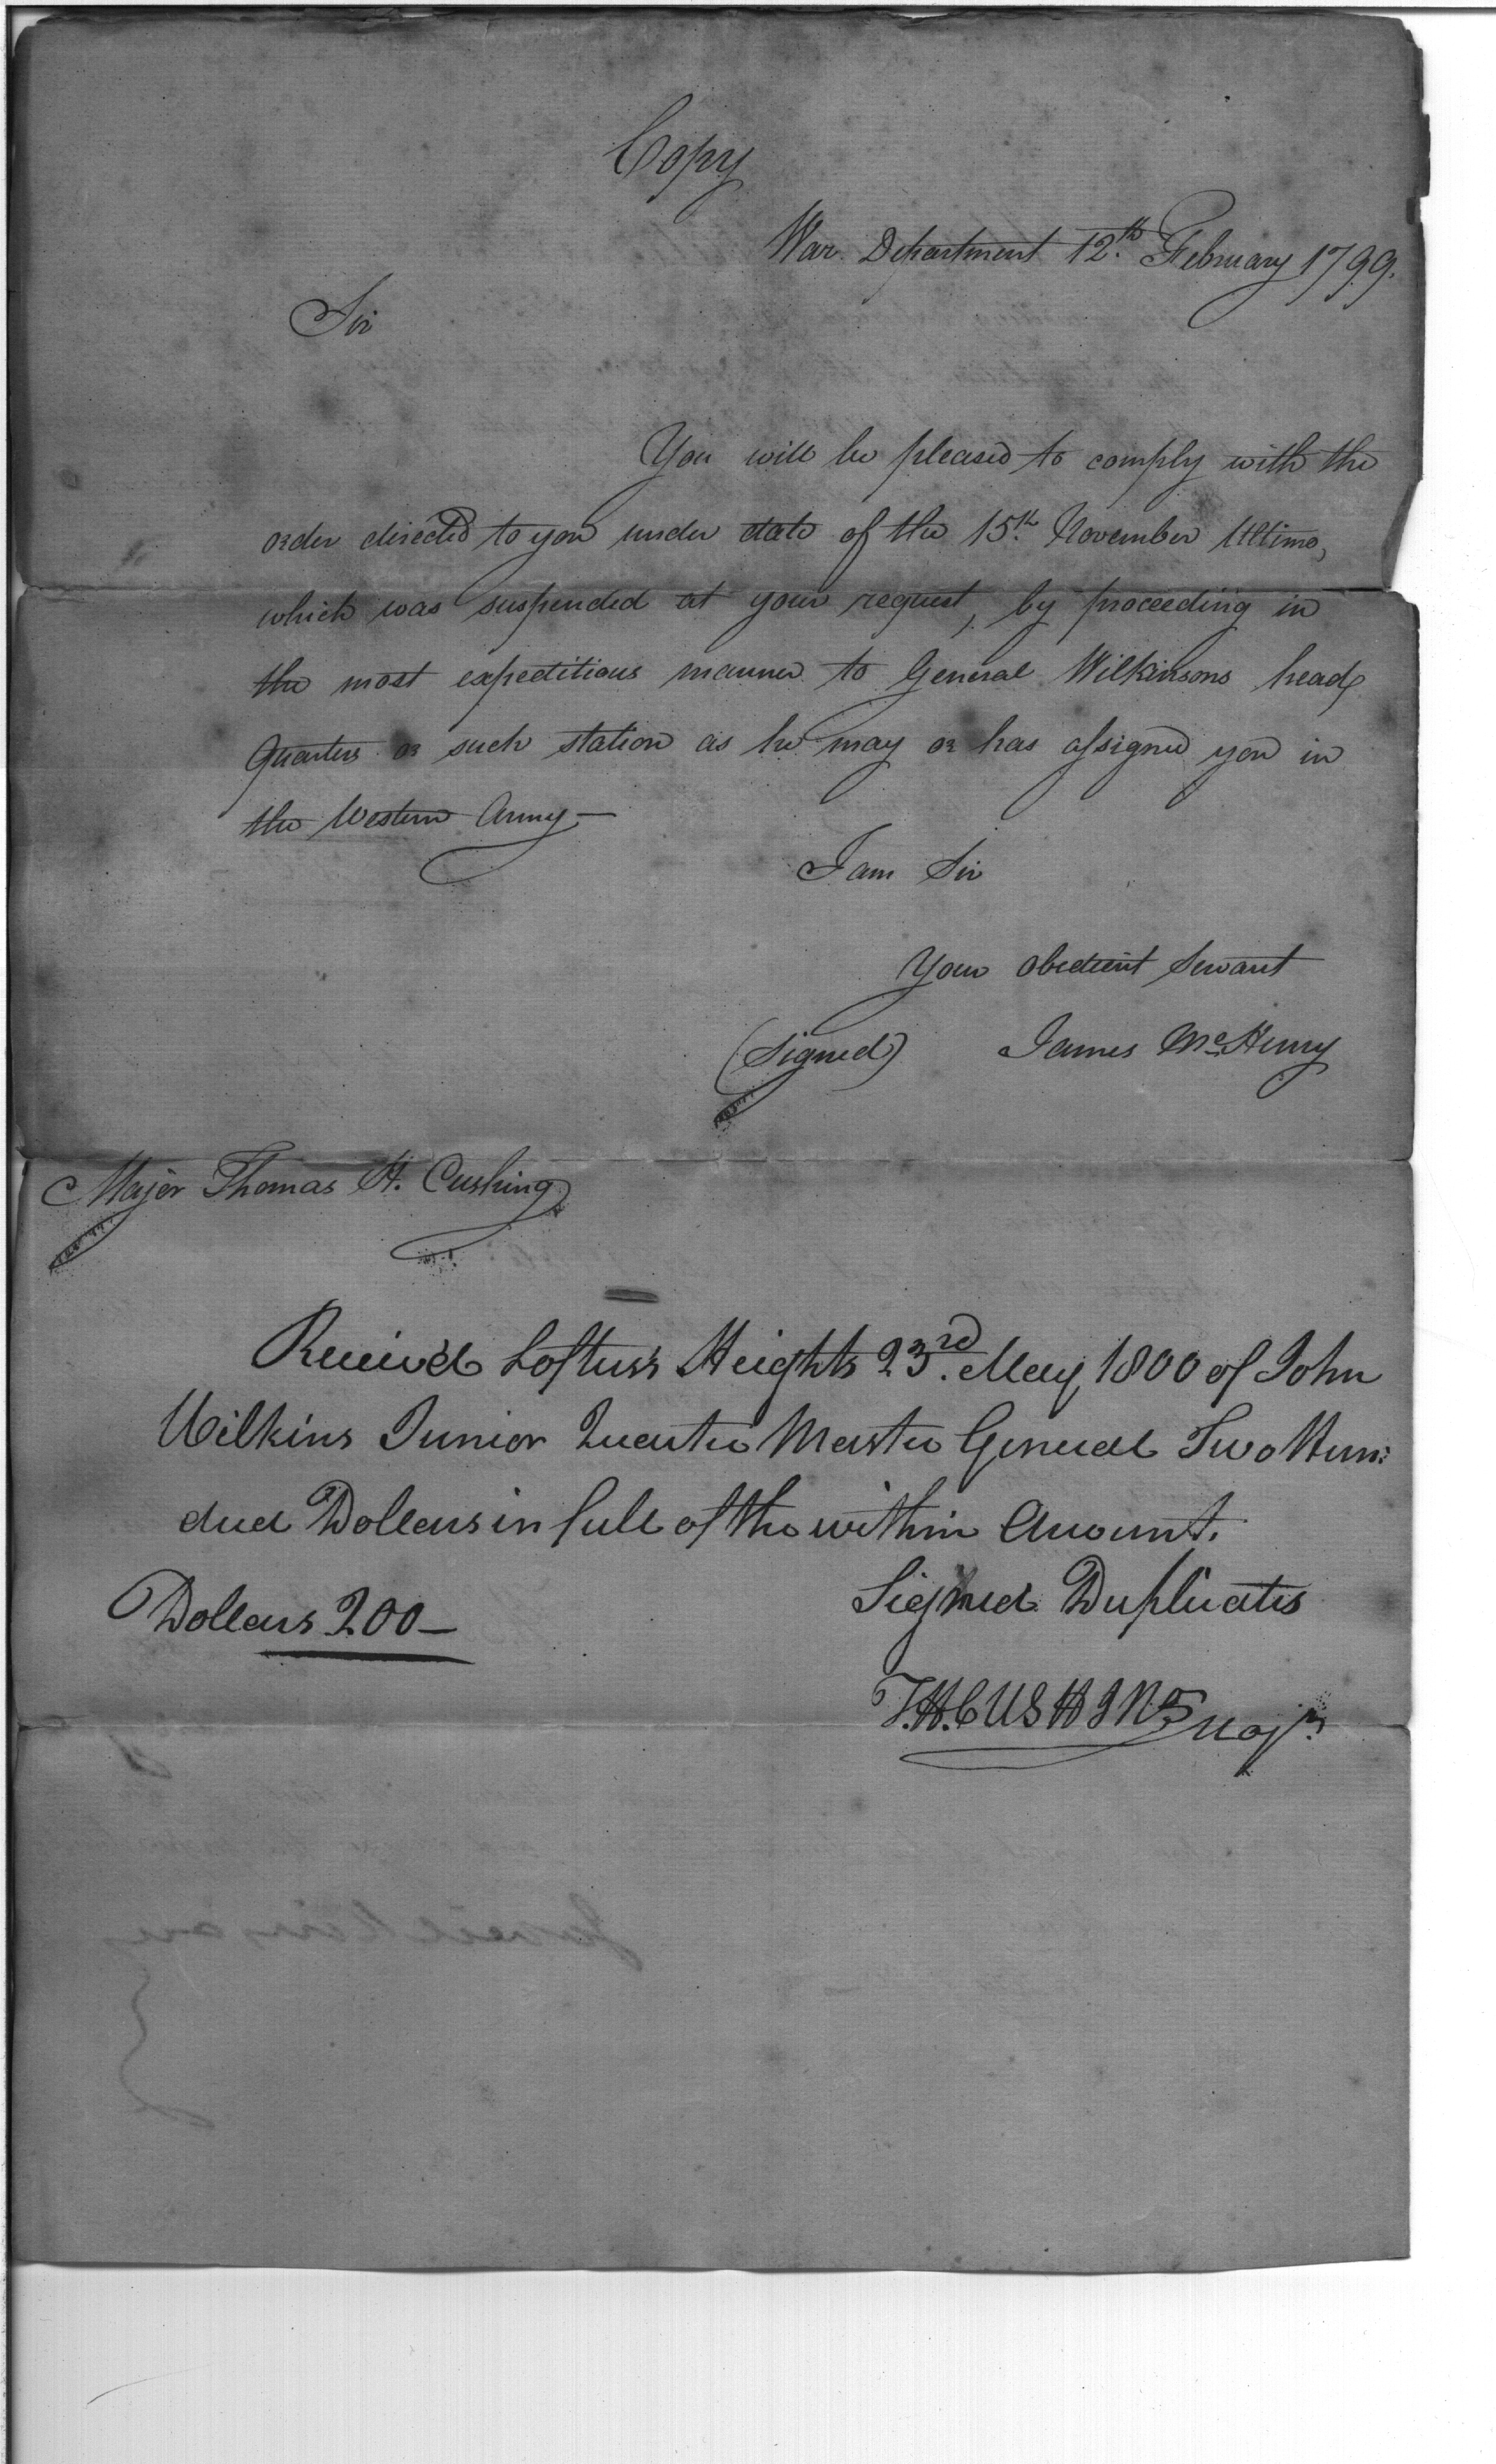 Copy
War Department 12.th February 1799.
Sir
You will be pleased to comply with the
order directed to you under date of the 15.th November Ultimo,
which was suspended at your request, by proceeding in
the most expeditious manner to General Wilkinsons head
Quarters or such station as he may or has assigned you in
the Western Army—
I am Sir
Your obedient Servant
(Signed) James McHenry
Major Thomas H. Cushing
Receiv'd Loftus's Heights 23.rd May 1800 of John
Wilkins Junior Quarter Master General Two Hun:
dred Dollars in full of the within Account.
Dollars 200—
Signed Duplicates
T.H.CUSHING Majr.